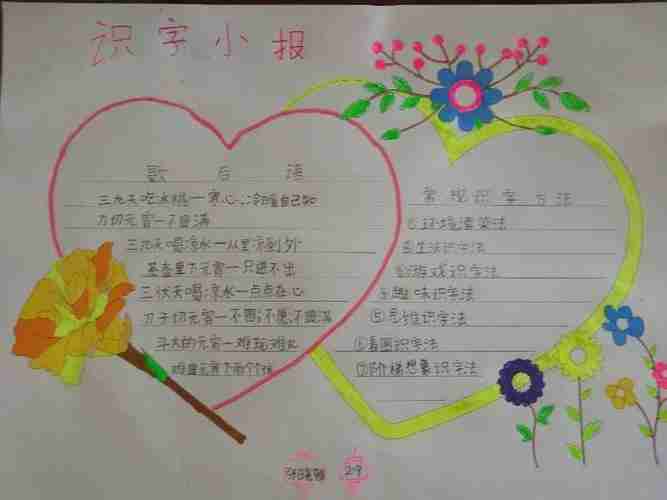 识字小报
歇后语
三九天吃冰桃一寒心;冷暖自己知
刀切元宵一不圆满
三九天喝凉水一从里凉到外
茶壶里下元宵一只进不出
三伏天喝凉水一点点在心
刀子切元宵一不圆;不愿;不圆满
斗大的元宵一难
常规识字方法
①环境渲染法
②生活识字法
③游戏识字法
④趣味识字法
⑤思维识字法
⑥看图识字法
⑦阶梯想象识字法
29